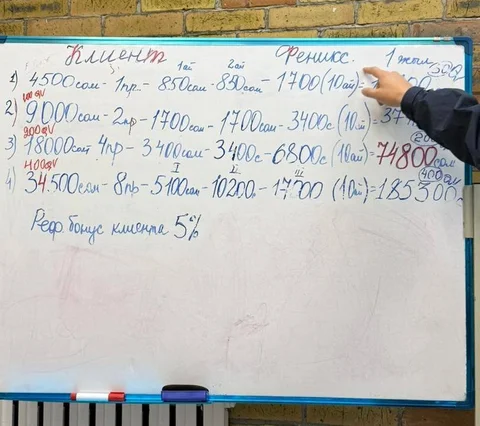 Клиент Феникс. 1 жыл
1ай 2ай 50QV
1) 4500сом - 1пр - 850сом - 850сом - 1700(10ай)=
100QV
2) 9000сом - 2пр - 1700сом - 1700сом - 3400с (10ай)=
200QV
3) 18000сом 4пр - 3400сом - 3400с - 6800с (10ай)=74800сом
400QV I II III (400QV
4) 34.500сом - 8пр - 5100сом - 10200с - 17000 (10ай)=185300с
Реф. бонус клиента 5%